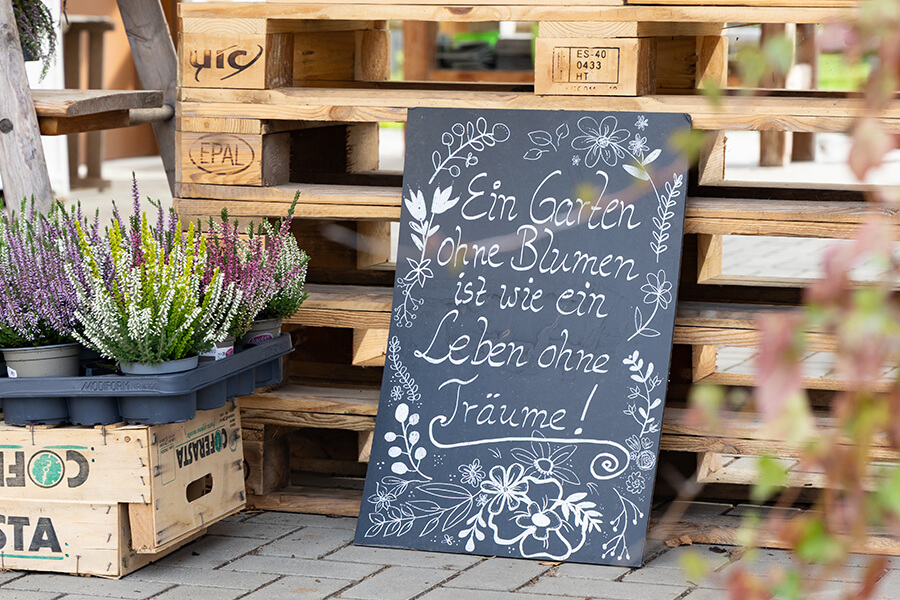 UIC
ES-40
0433
HT
EPAL
Ein Garten
ohne Blumen
ist wie ein
Leben ohne
Träume!
MODIFORM
COFERASTA